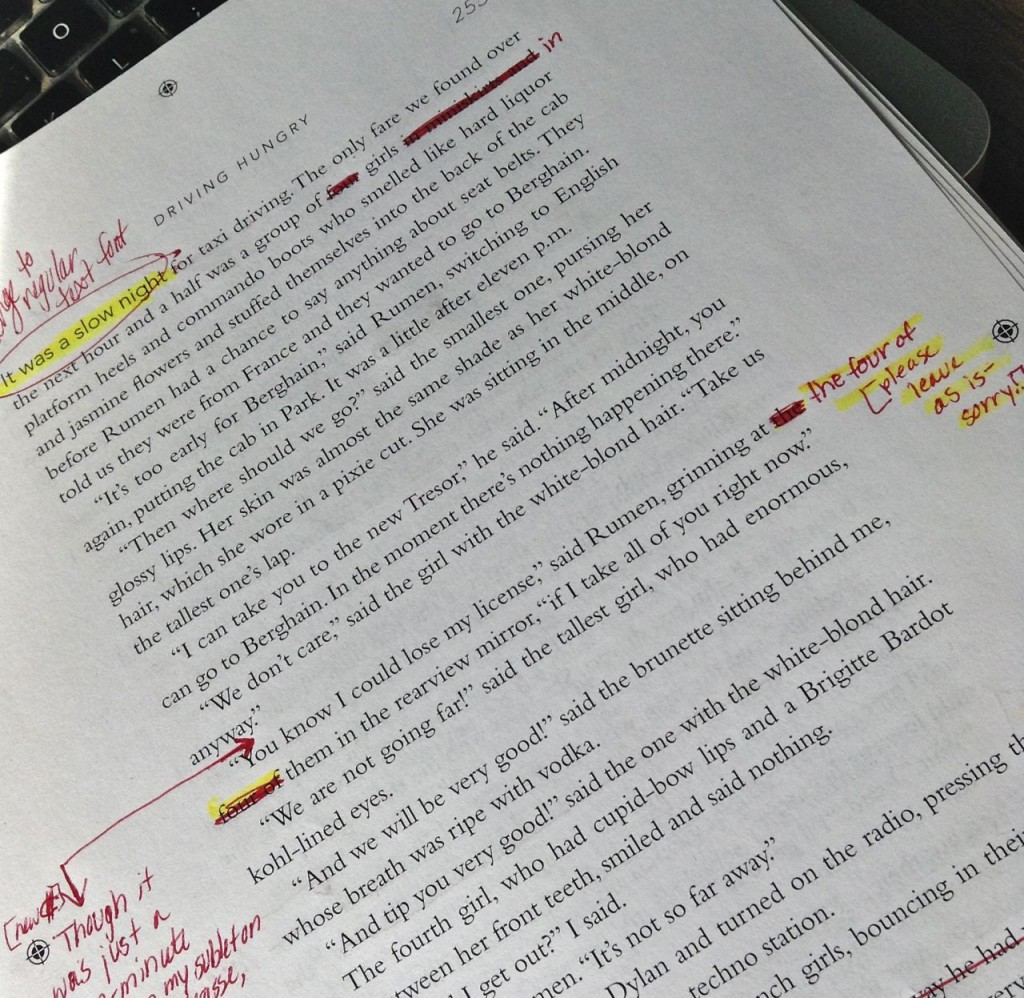 O
L
255
DRIVING HUNGRY
to
regular
text font
It was a slow night for taxi driving. The only fare we found over
the next hour and a half was a group of four girls in miniskirts and in
platform heels and commando boots who smelled like hard liquor
and jasmine flowers and stuffed themselves into the back of the cab
before Rumen had a chance to say anything about seat belts. They
told us they were from France and they wanted to go to Berghain.
“It’s too early for Berghain,” said Rumen, switching to English
again, putting the cab in Park. It was a little after eleven p.m.
“Then where should we go?” said the smallest one, pursing her
glossy lips. Her skin was almost the same shade as her white-blond
hair, which she wore in a pixie cut. She was sitting in the middle, on
the tallest one’s lap.
“I can take you to the new Tresor,” he said. “After midnight, you
can go to Berghain. In the moment there’s nothing happening there.”
“We don’t care,” said the girl with the white-blond hair. “Take us
anyway.”
“You know I could lose my license,” said Rumen, grinning at the the four of
[please
leave
as is-
sorry.]
four of them in the rearview mirror, “if I take all of you right now.”
“We are not going far!” said the tallest girl, who had enormous,
kohl-lined eyes.
“And we will be very good!” said the brunette sitting behind me,
whose breath was ripe with vodka.
“And tip you very good!” said the one with the white-blond hair.
The fourth girl, who had cupid-bow lips and a Brigitte Bardot
tween her front teeth, smiled and said nothing.
I get out?” I said.
men. “It’s not so far away.”
Dylan and turned on the radio, pressing th
techno station.
nch girls, bouncing in their
he had
[new ¶]
Though it
was just a
minute
my sublet on
asse,